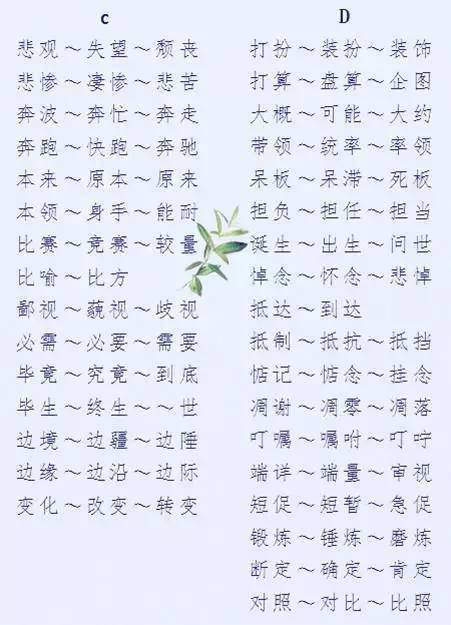 c
悲观～失望～颓丧
悲惨～凄惨～悲苦
奔波～奔忙～奔走
奔跑～快跑～奔驰
本来～原本～原来
本领～身手～能耐
比赛～竞赛～较量
比喻～比方
鄙视～藐视～歧视
必需～必要～需要
毕竟～究竟～到底
毕生～终生～一世
边境～边疆～边陲
边缘～边沿～边际
变化～改变～转变
D
打扮～装扮～装饰
打算～盘算～企图
大概～可能～大约
带领～统率～率领
呆板～呆滞～死板
担负～担任～担当
诞生～出生～问世
悼念～怀念～悲悼
抵达～到达
抵制～抵抗～抵挡
惦记～惦念～挂念
凋谢～凋零～凋落
叮嘱～嘱咐～叮咛
端详～端量～审视
短促～短暂～急促
锻炼～锤炼～磨炼
断定～确定～肯定
对照～对比～比照